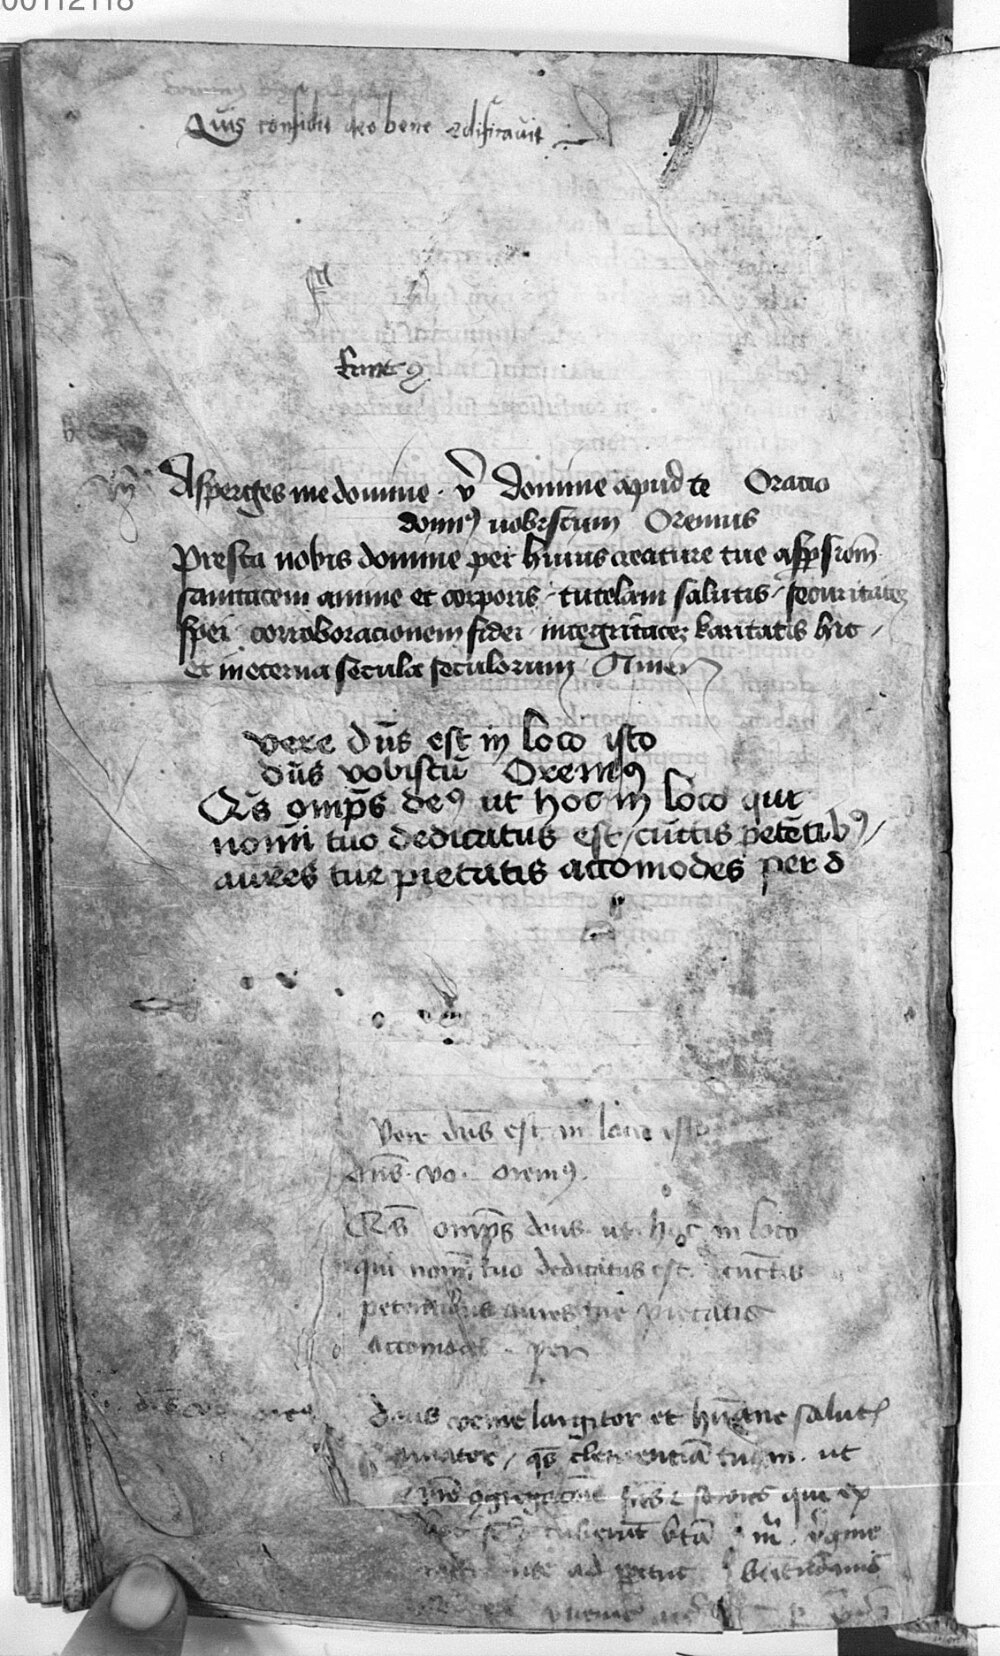 00112118
Quis confidit deo bene edificavit
Asperges me domine . v Domine apud te Oratio
domi9 uobiscum Oremus
Presta nobis domine per huius creature tue asp̱sionem
sanitatem anime et corporis / tutelam salutis / securitatem
spei / corroboracionem fidei / integritatem karitatis hic /
Et in eterna secula seculorum / Amen
vere dūs est in loco isto
dūs vobiscū Orem9
Qs omp̄s de9 ut hoc in loco qui
noīni tuo dedicatus est / cūctis petētib9 /
aures tue pietatis accomodes per d
Vere dūs est in loco isto
dūs . vo . orem9 .
Qs omp̄s deus ut hoc in loco
qui nomī tuo dedicatus est . cunctis
petentibus aures tue pietatis
accomodes . per
Deus venie largitor et hūane salut
amator / qs clemenciā tuam . ut
qui ex
btā virgine
ad